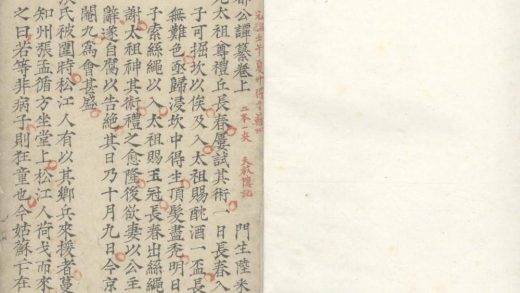 都公譚纂卷上 門生陸采
元太祖尊禮丘長春屢試其術一日長春入
子可掘坎以俟及入太祖賜酖酒一盃長
無難色亟歸浸坎中得生頂髮盡禿明日
子索絲繩以入太祖賜玉冠長春出絲繩
謝太祖神其術禮之愈隆後欲妻以公主
辭遂自腐以告絕其日乃十月九日今京
閹九為會甚盛
氏被圍時松江人有以其鄉兵來援者蔓
知州張孟循方坐堂上松江人荷戈而來
之曰若等非病子則狂童也今姑蘇亡在